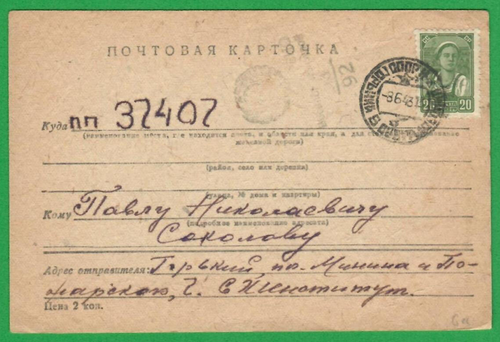 ПОЧТОВАЯ КАРТОЧКА
26
20 20
Куда пп 37407
(наименование места, где находится почта, и области или края, а для
железной дороги)
(район, село или деревня)
(улица, № дома и квартиры)
Кому Павлу Николаевичу
(подробное наименование адресата)
Соколову
Адрес отправителя: Горький, пл. Минина и По-
жарского, 7. СХИнститут.
Цена 2 коп.